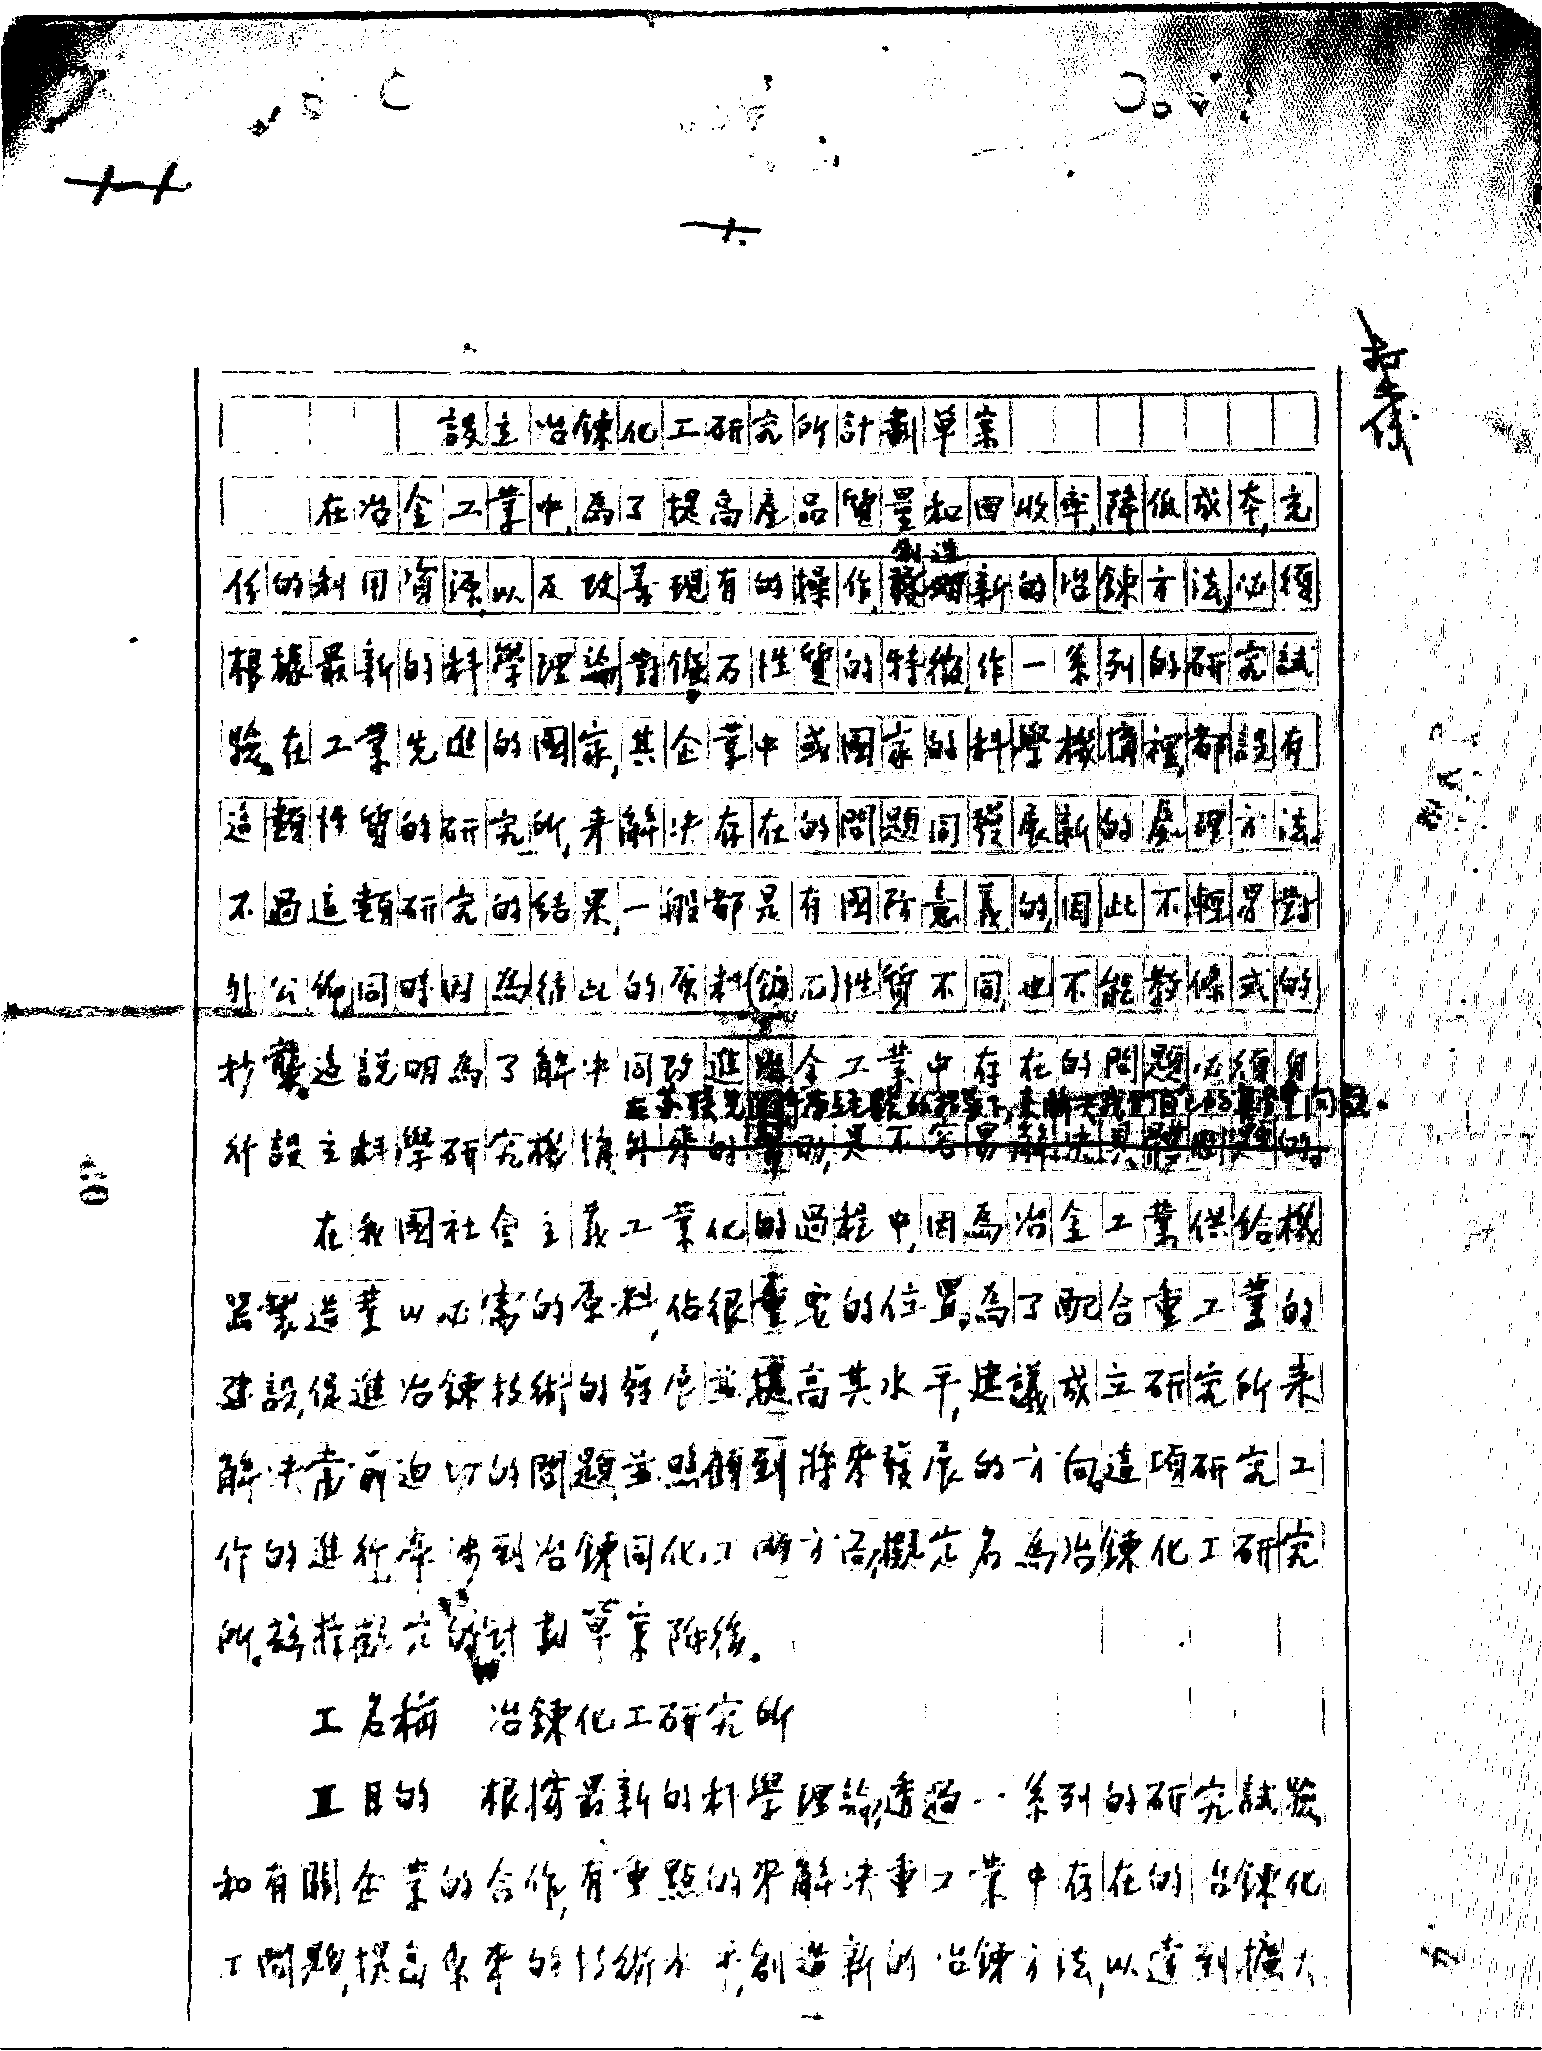 設立冶鍊化工研究所計劃草案
在冶金工業中,為了提高產品質量和回收率,降低成本,充
份的利用資源,以及改善現有的操作,創造新的冶鍊方法,必須
根據最新的科學理論,對礦石性質的特徵,作一系列的研究試
驗。在工業先進的國家,其企業中或國家的科學機構裡,都設有
這類性質的研究所,來解決存在的問題同發展新的處理方法。
不過這類研究的結果,一般都是有國防意義的,因此不輕易對
外公佈,同時因為彼此的原料(礦石)性質不同,也不能教條式的
抄襲。這說明為了解決同改進冶金工業中存在的問題,必須自
行設立科學研究機構
外來的幫助,是不容易解決具體問題的。
在我國社會主義工業化的過程中,因為冶金工業供給機
器製造業以必需的原料,佔很重要的位置,為了配合重工業的
建設,促進冶鍊技術的發展並提高其水平,建議成立研究所來
解決當前迫切的問題並照顧到將來發展的方向。這項研究工
作的進行牽涉到冶鍊同化工兩方面,擬定名為冶鍊化工研究
所。茲將擬定的計劃草案附後。
I 名稱 冶鍊化工研究所
II 目的 根據最新的科學理論,透過一系列的研究試驗
和有關企業的合作,有重點的來解決重工業中存在的冶鍊化
工問題,提高原來的技術水平,創造新的冶鍊方法,以達到擴大